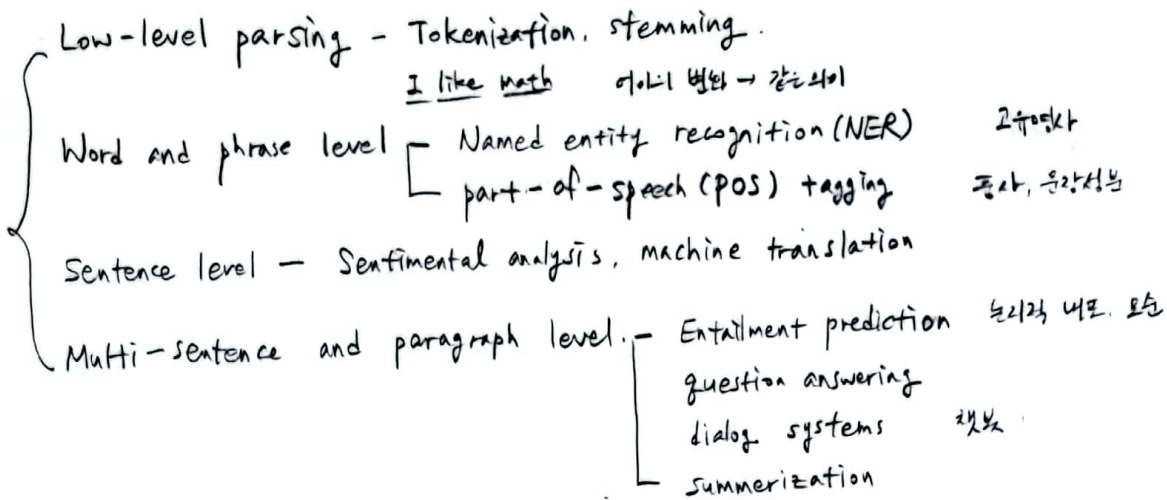 Low-level parsing - Tokenization, stemming.
I like math 어미의 변화 → 같은 의미
Word and phrase level - Named entity recognition (NER) 고유명사
part-of-speech (POS) tagging 품사, 문장성분
Sentence level - Sentimental analysis, machine translation
Multi-sentence and paragraph level. - Entailment prediction 논리적 내포, 모순
question answering
dialog systems 챗봇
summerization